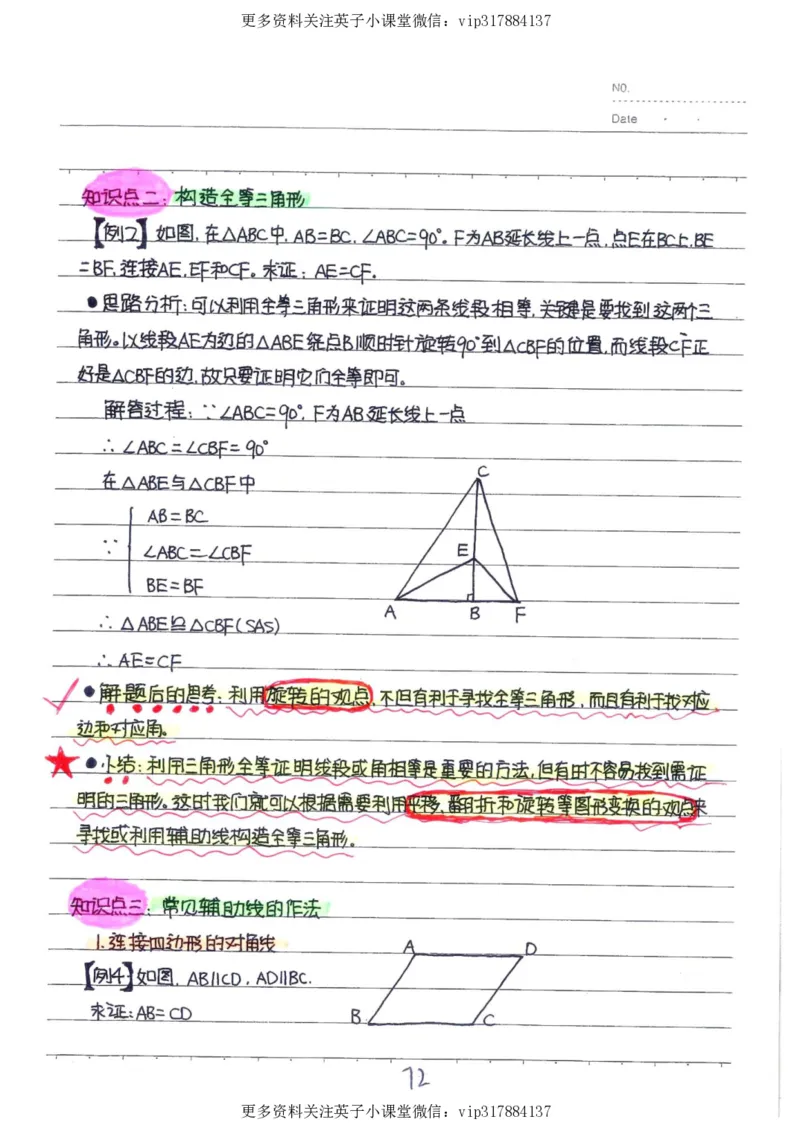 更多资料关注英子小课堂微信：vip317884137
NO.
Date
知识点二：构造全等三角形
【例2】如图,在△ABC中,AB=BC,∠ABC=90°。F为AB延长线上一点,点E在BC上,BE
=BF,连接AE,EF和CF。求证：AE=CF.
●思路分析：可以利用全等三角形来证明这两条线段相等,关键是要找到这两个三
角形。以线段AE为边的△ABE绕点B顺时针旋转90°到△CBF的位置,而线段CF正
好是△CBF的边,故只要证明它们全等即可。
解答过程：∵∠ABC=90°,F为AB延长线上一点
∴∠ABC=∠CBF=90°
在△ABE与△CBF中
AB=BC
∵ ∠ABC=∠CBF
BE=BF
∴△ABE≌△CBF(SAS)
∴AE=CF
C
E
A B F
●解题后的思考：利用旋转的观点,不但有利于寻找全等三角形,而且有利于找对应
边和对应角。
★●小结：利用三角形全等证明线段或角相等是重要的方法,但有时不容易找到需证
明的三角形。这时我们就可以根据需要利用平移、翻折和旋转等图形变换的观点来
寻找或利用辅助线构造全等三角形。
知识点三：常见辅助线的作法
1.连接四边形的对角线
【例4】如图,AB∥CD,AD∥BC.
求证：AB=CD
A D
B C
72
更多资料关注英子小课堂微信：vip317884137